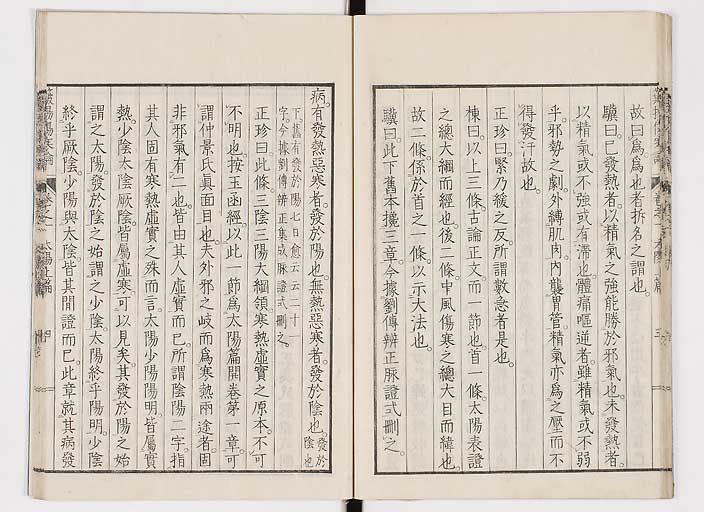 故曰爲爲也者拆名之謂也。
驥曰。已發熱者。以精氣之強能勝於邪氣也。未發熱者。
以精氣或不強或有滯也。體痛嘔逆者。雖精氣或不弱
乎。邪勢之劇。外縛肌肉。內襲胃管。精氣亦爲之壓而不
得發汗故也。
正珍曰。緊乃緩之反。所謂數急者是也。
棟曰。以上三條。古論正文。而一節也。首一條。太陽表證
之總大綱而經也。後二條。中風傷寒之總大目而緯也。
故二條係於首之一條。以示大法也。
驥曰。此下舊本攙三章。今據劉傳辨正脉證式刪之。
病。有發熱惡寒者。發於陽也。無熱惡寒者。發於陰也。
發於陰也
下。舊有發於陽七日愈云云二十
字。今據劉傳辨正集成脉證式刪之。
正珍曰。此條。三陰三陽大綱領。寒熱虛實之原本。不可
不明也。按玉函經。以此一節爲太陽篇開卷第一章。可
謂仲景氏眞面目也。夫外邪之岐而爲寒熱兩途者。固
非邪氣有二也。皆由其人虛實而已。所謂陰陽二字。指
其人固有寒熱虛實之殊而言。太陽少陽陽明。皆屬實
熱。少陰太陰厥陰。皆屬虛寒。可以見矣。其發於陽之始
謂之太陽。發於陰之始。謂之少陰。太陽終乎陽明。少陰
終乎厥陰。少陽與太陰。皆其間證而已。此章就其病發